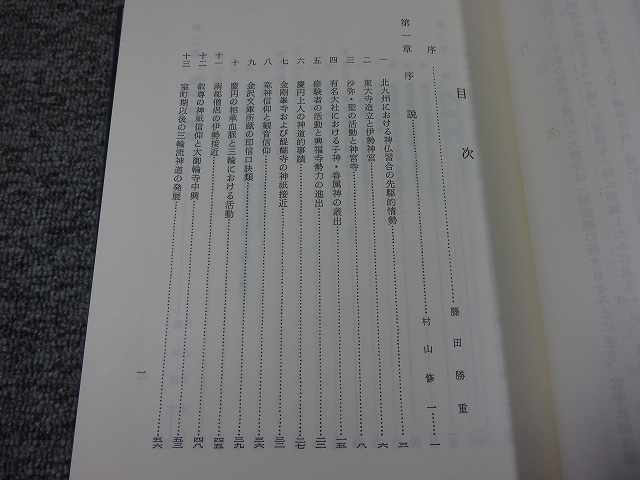 目次
序……藤田勝重
第一章 序説……村山修一……一
一 北九州における神仏習合の先駆的情勢……三
二 東大寺造立と伊勢神宮……六
三 沙弥・聖の活動と神宮寺……八
四 有名大社における子神・眷属神の叢出……一五
五 修験者の活動と興福寺勢力の進出……二二
六 慶円上人の神道的事蹟……二七
七 金剛峯寺および醍醐寺の神祇接近……三二
八 竜神信仰と観音信仰……三六
九 金沢文庫所蔵の印信口訣類……三九
十 慶円の相承血脈と三輪における活動……四五
十一 南都僧侶の伊勢接近……四八
十二 叡尊の神祇信仰と大御輪寺中興……五三
十三 室町期以後の三輪流神道の発展……五六
一